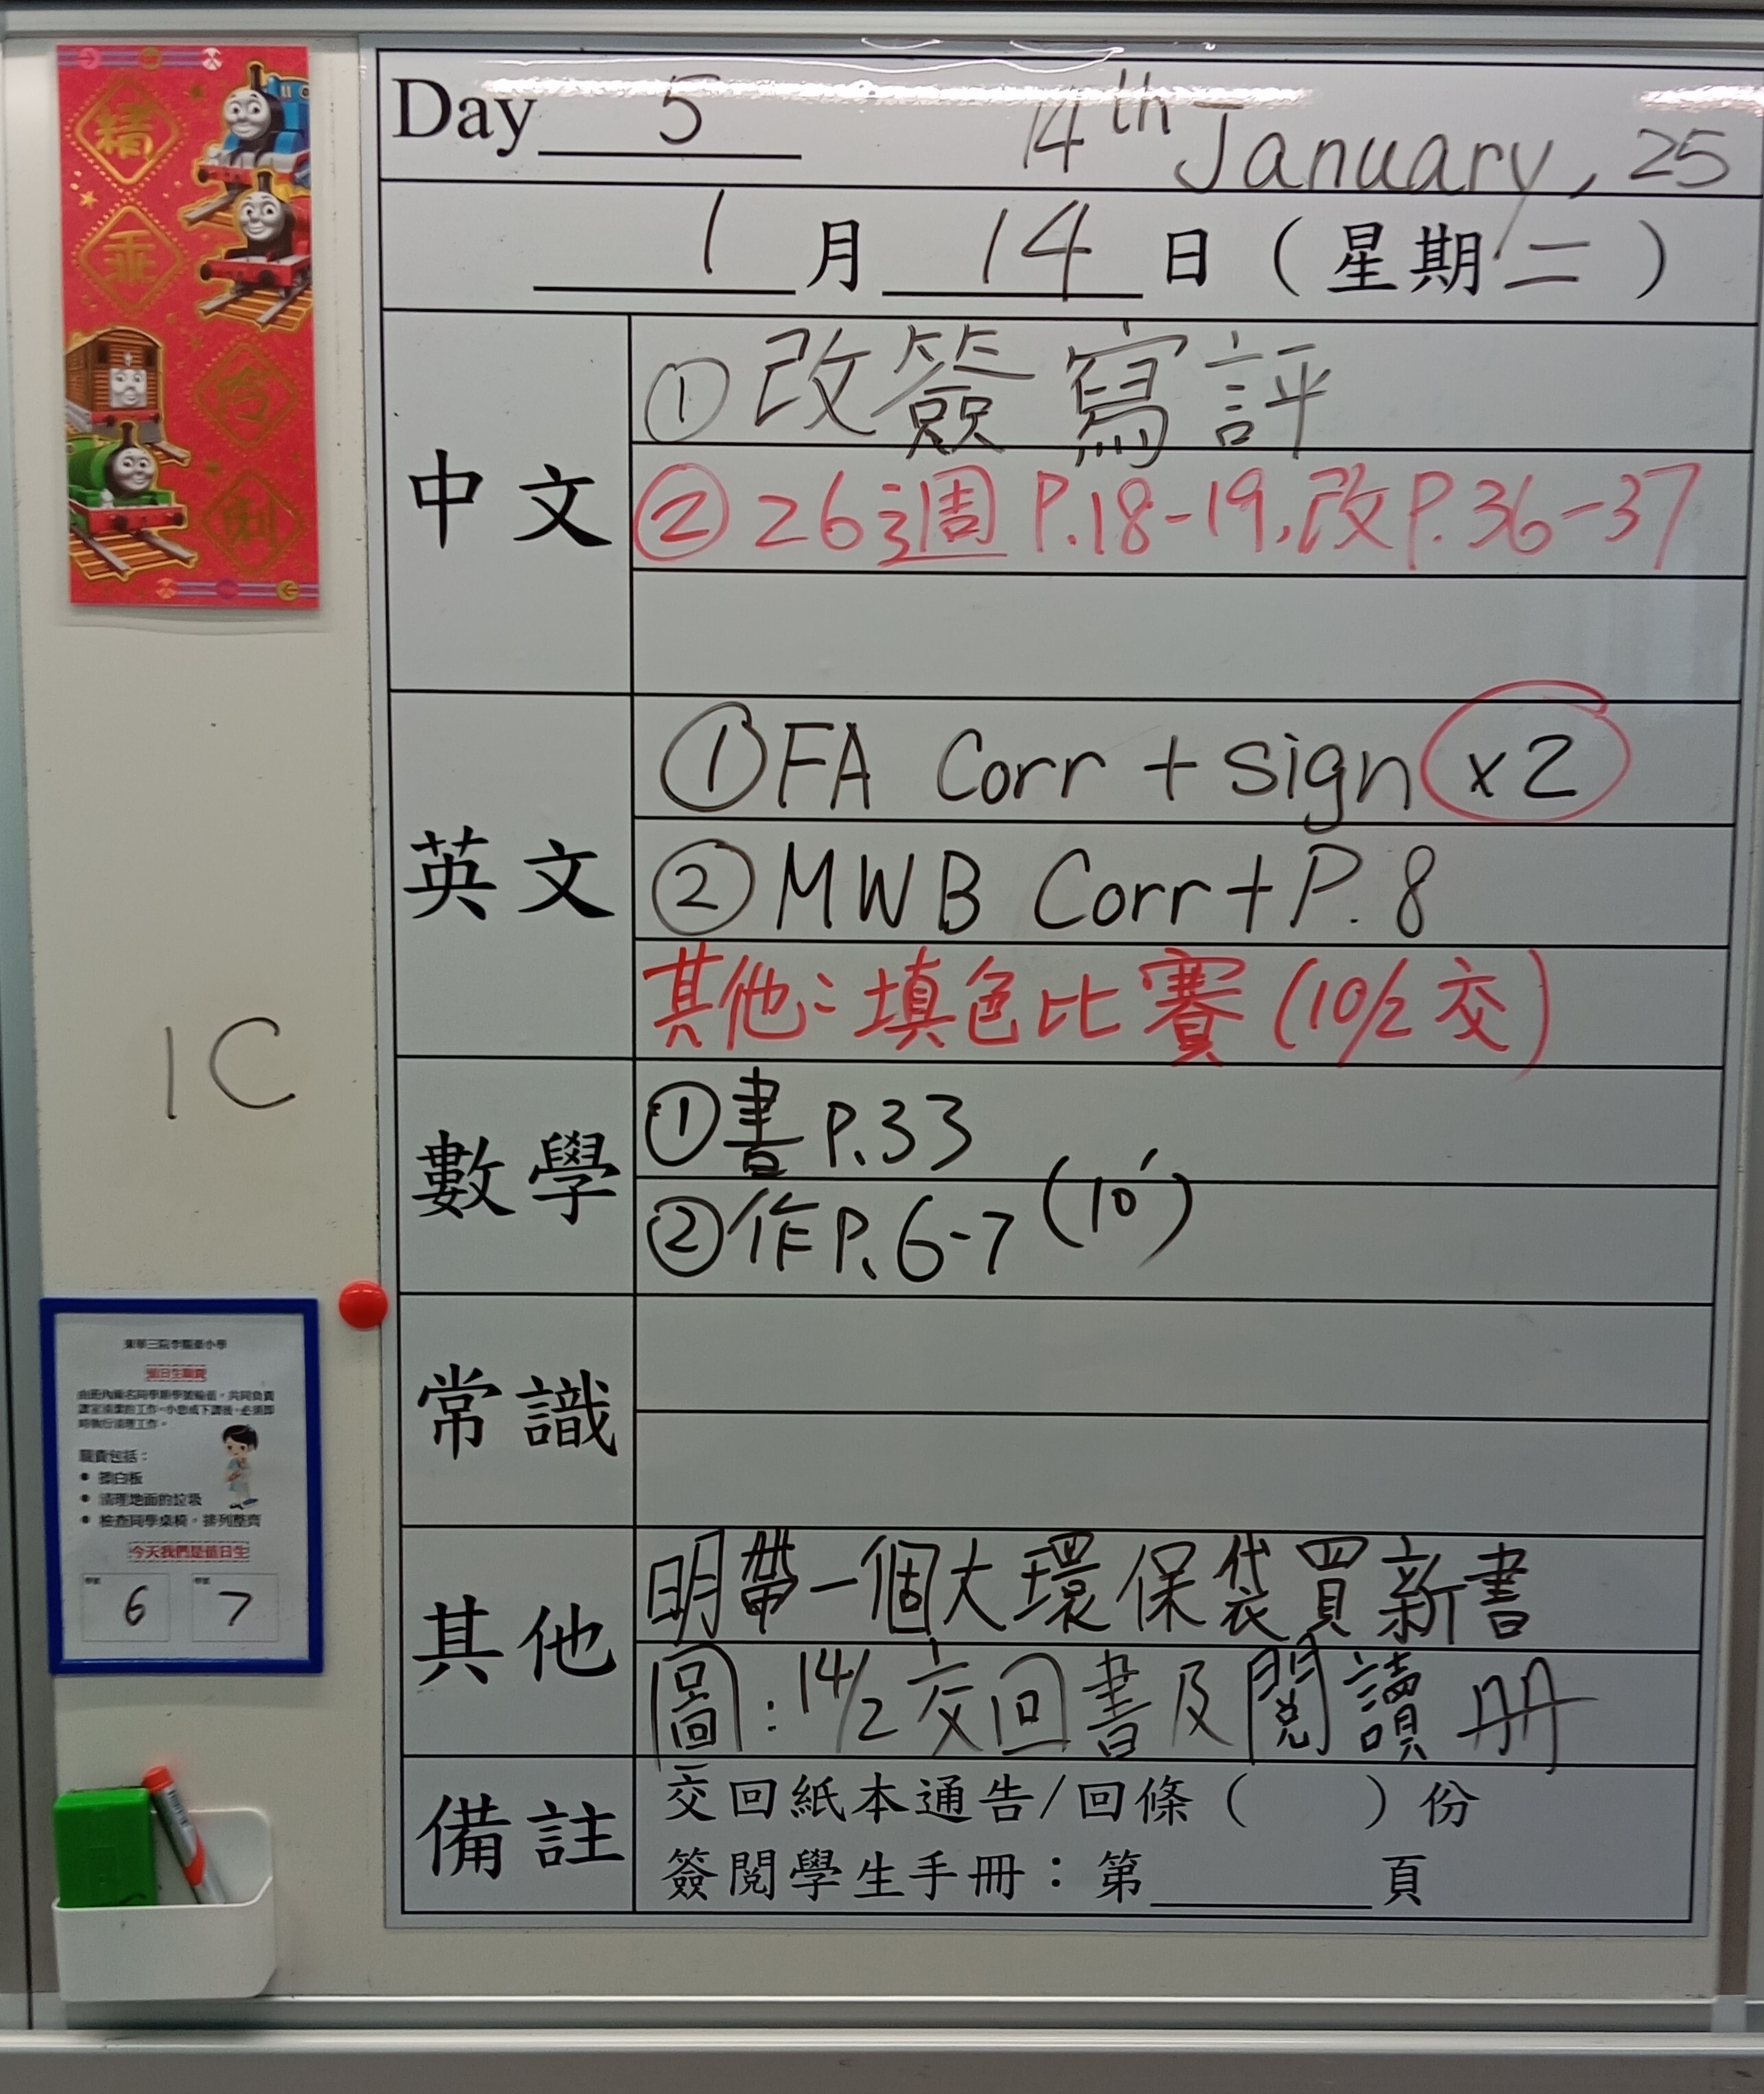 精
乖
合
Day 5 14th January, 25
1月14日（星期二）
中文
①改簽寫評
②26週P.18-19,改P.36-37
英文
①FA Corr + sign ×2
②MWB Corr+P.8
其他：填色比賽(10/2交)
數學
①書P.33
②作P.6-7 (10')
常識
其他
明帶一個大環保袋買新書
圖:14/2交回書及閱讀册
備註
交回紙本通告/回條（ ）份
簽閱學生手冊：第 頁
1C
值日生職責
職責包括：
• 擦白板
• 清理地面的垃圾
• 檢查同學桌椅，排列整齊
今天我們是值日生
6 7